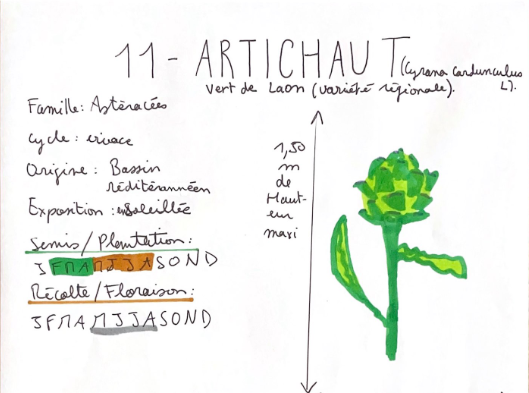 11 - ARTICHAUT (Cyrana Cardunculus L).
Vert de Laon (variété régionale).
Famille: Astéracées
Cycle: vivace
Origine: Bassin
réditérannéen
Exposition: ensoleillée
Semis/Plantation:
JFMAMJJASOND
Récolte/Floraison:
JFMAMJJASOND
1,50
m
de
Haut-
eur
maxi